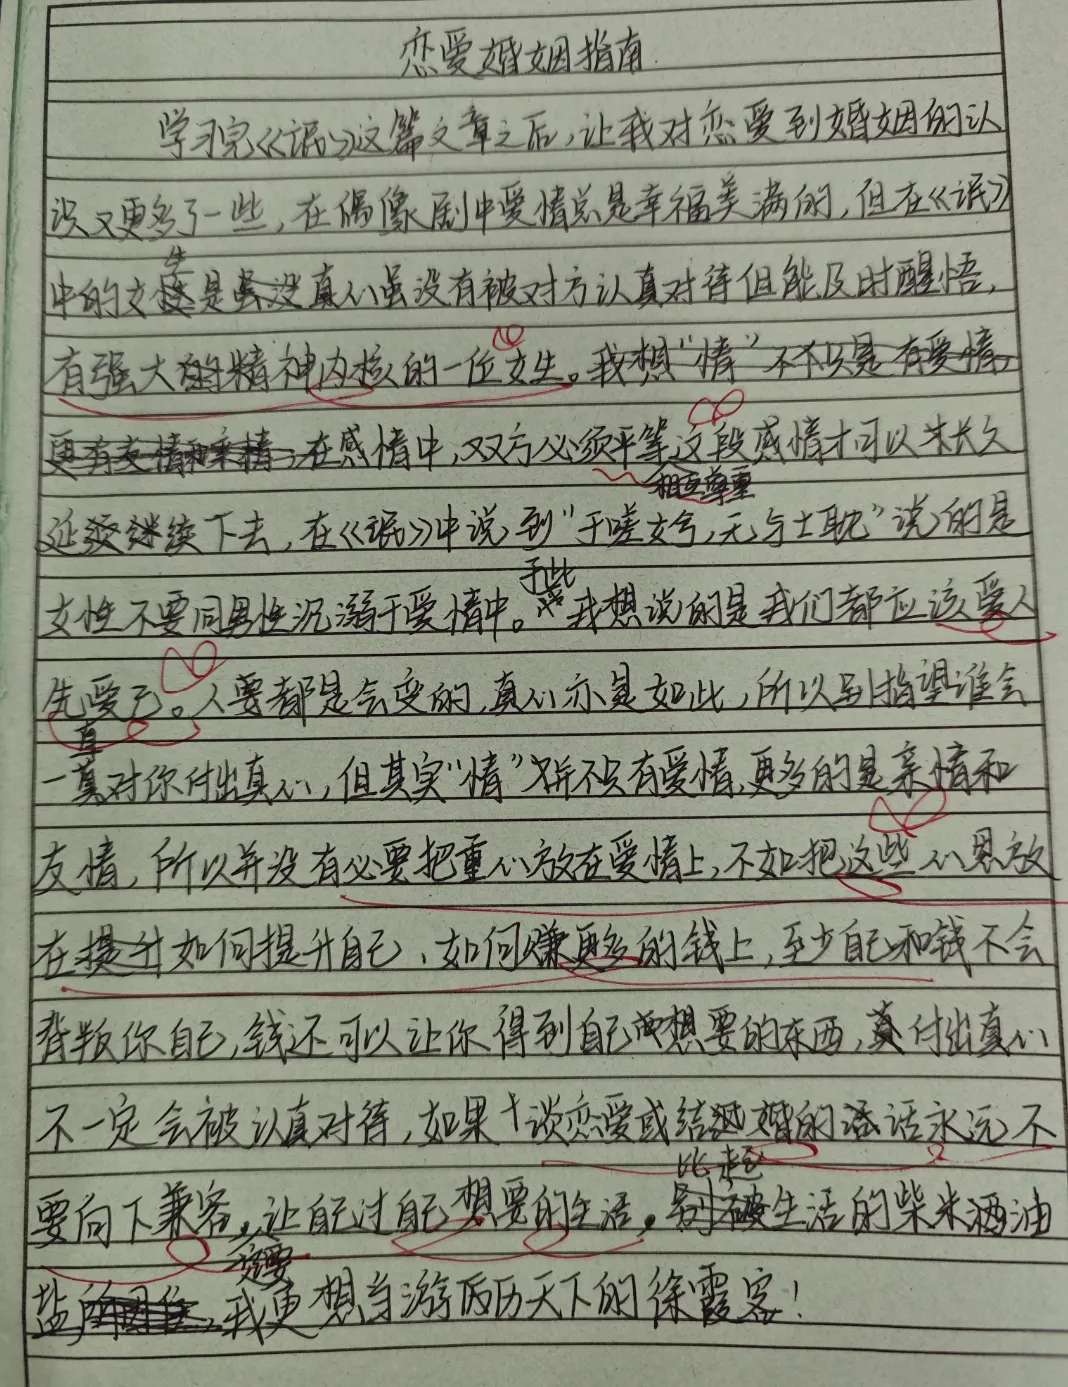 恋爱婚姻指南
学习完《氓》这篇文章之后,让我对恋爱到婚姻的认
识又更多了一些,在偶像剧中爱情总是幸福美满的,但在《氓》
中的女生是虽没真心虽没有被对方认真对待但能及时醒悟,
有强大的精神内核的一位女生。我想“情”不只是有爱情,
更有友情和亲情,在感情中,双方必须平等这段感情才可以长久
相互尊重
延续继续下去,在《氓》中说到“于嗟女兮,无与士耽”说的是
于此
女性不要同男性沉溺于爱情中。我想说的是我们都应该爱人
先爱己。人要都是会变的,真心亦是如此,所以别指望谁会
直
一真对你付出真心,但其实“情”并不只有爱情,更多的是亲情和
友情,所以并没有必要把重心放在爱情上,不如把这些心思放
在提升如何提升自己、如何赚更多的钱上,至少自己和钱不会
背叛你自己,钱还可以让你得到自己想要的东西,真付出真心
不一定会被认真对待,如果谈恋爱或结婚的话话永远不
比起
要向下兼容,让自己过自己想要的生活。别被生活的柴米酒油
盐所困住,我更想当游历天下的徐霞客!